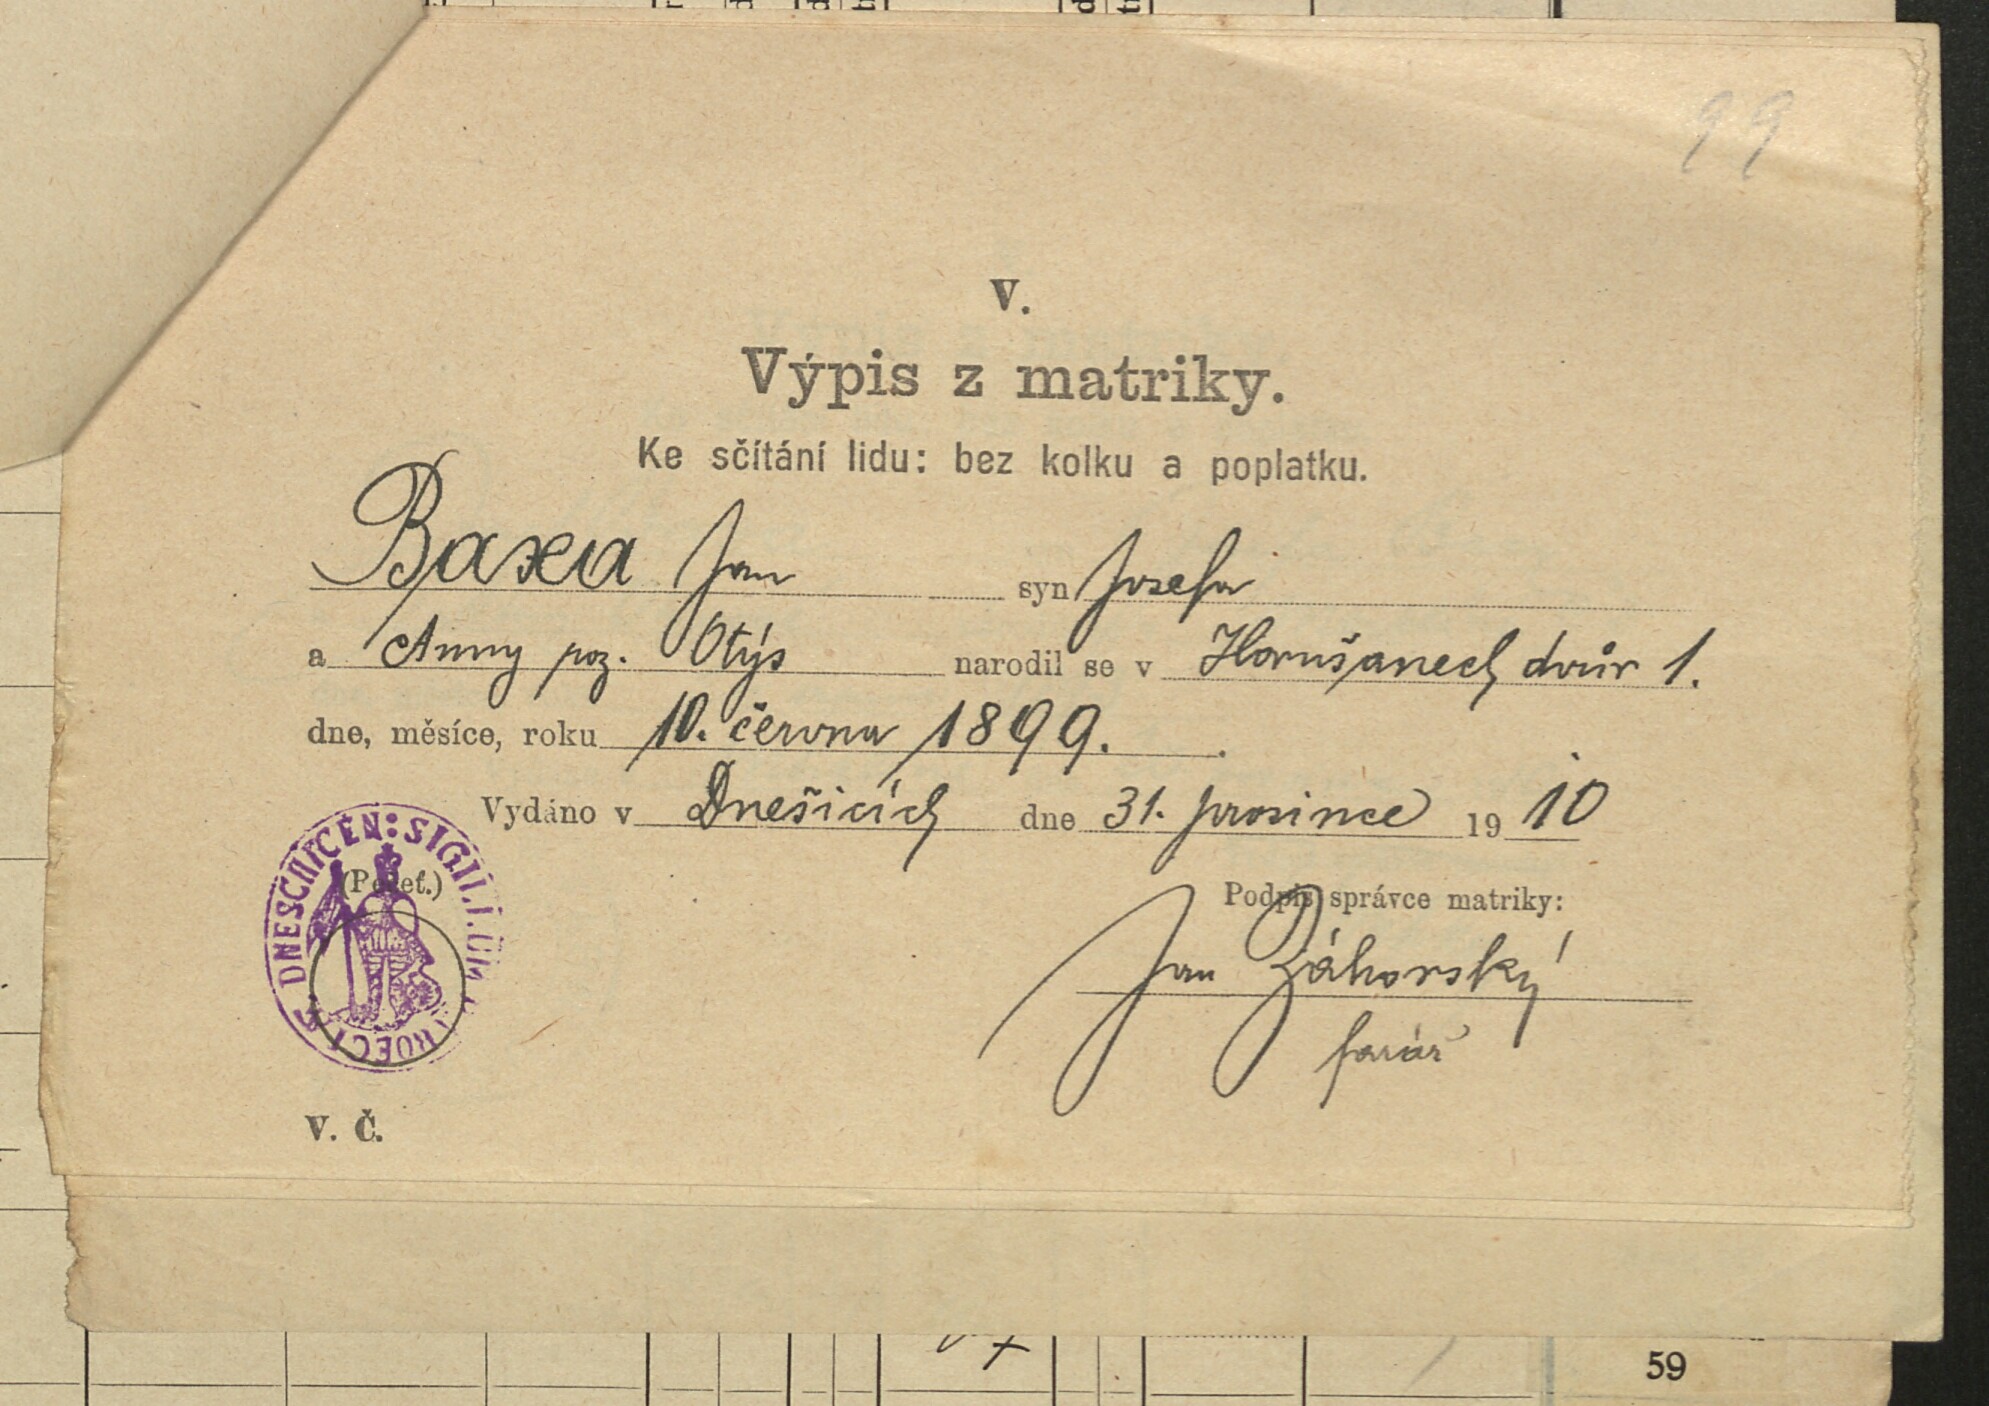 99
V.
Výpis z matriky.
Ke sčítání lidu: bez kolku a poplatku.
Baxa Jan syn Josefa
a Anny poz. Otýs narodil se v Horušanech dvůr 1.
dne, měsíce, roku 10. června 1899.
Vydáno v Dnešicích dne 31. prosince 1910
DNESCHICEN: SIGILLUM
(Pečeť.)
Podpis správce matriky:
Jan Záhorský
farář
V. Č.
59